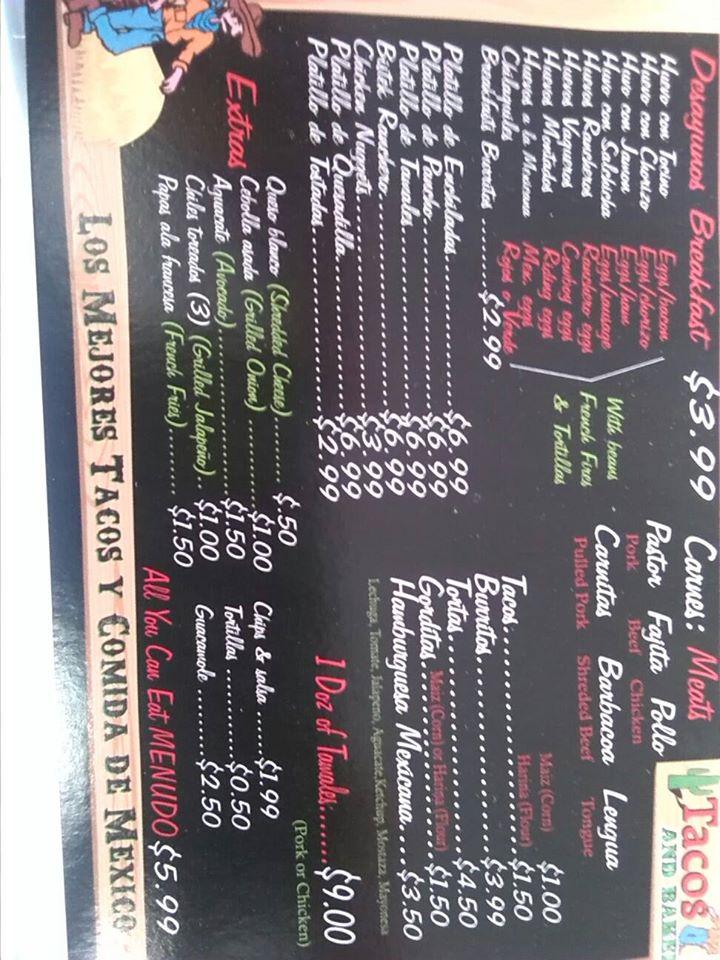 Desayunos Breakfast $3.99
Huevo con Tocino Eggs/bacon
Huevo con Chorizo Eggs/chorizo
Huevo con Jamon Eggs/ham
Huevo con Salchicha Eggs/sausage
Huevos Rancheros Ranchero eggs
Huevos Vaqueros Cowboy eggs
Huevos Montados Riding eggs
Huevos a la Mexicana Mex. eggs
Chilaquiles Rojos o Verde
Breakfast Burritos ......$2.99
With beans
French Fires
& Tortillas
Platillo de Enchiladas..............$6.99
Platillo de Pancho..................$6.99
Platillo de Tamales.................$6.99
Bistek Ranchero.....................$6.99
Chicken Nuggets.....................$3.99
Platillo de Quesadilla..............$6.99
Platillo de Tostadas................$2.99
Extras
Queso blanco (Shredded Cheese)........$.50
Cebolla asada (Grilled Onion).........$1.00
Aguacate (Avocado)....................$1.50
Chiles toreados (3) (Grilled Jalapeño)..$1.00
Papas ala francesa (French Fries)........$1.50
Tacos
AND BAKE
Carnes: Meats
Pastor Fajita Pollo
Pork Beef Chicken
Carnitas Barbacoa Lengua
Pulled Pork Shreded Beef Tongue
Maiz (Corn) $1.00
Tacos..............Harina (Flour) $1.50
Burritos...................$3.99
Tortas.....................$4.50
Gorditas..Maiz (Corn) or Harina (Flour).......$1.50
Hamburguesa Mexicana....$3.50
Lechuga, Tomate, Jalapeno, Aguacate,Ketchup, Mostaza, Mayonesa
1 Doz of Tamales.......$9.00
(Pork or Chicken)
Chips & salsa ......$1.99
Tortillas ...........$0.50
Guacamole ........$2.50
All You Can Eat MENUDO $5.99
LOS MEJORES TACOS Y COMIDA DE MEXICO